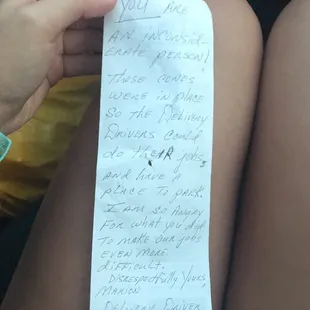 YOU ARE
AN INCONSID-
ERATE PERSON!
THOSE CONES
WERE IN PLACE
SO THE DELIVERY
DRIVERS COULD
do THEIR jobs,
AND HAVE A
PLACE TO PARK.
I AM SO ANGRY
FOR WHAT YOU DID
TO MAKE OUR JOBS
EVEN MORE
difficult.
DISRESPECTFULLY YOURS,
MARION
DELIVERY DRIVER